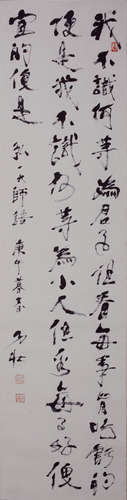 我不識何等為君子但看每事肯吃虧的
便是我不識何等為小人但看每事好便
宜的便是 弘一大師語 庚午暮冬